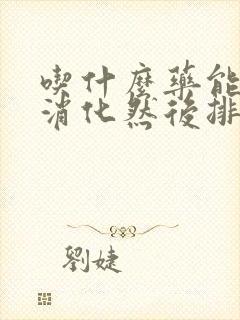 喫什麼藥能
消化然後排
劉婕